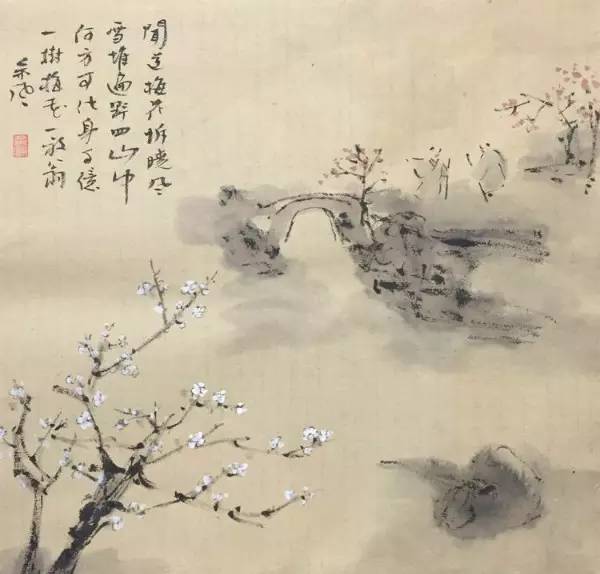 聞道梅花坼曉風
雪堆遍野四山中
何方可化身千億
一樹梅花一放翁